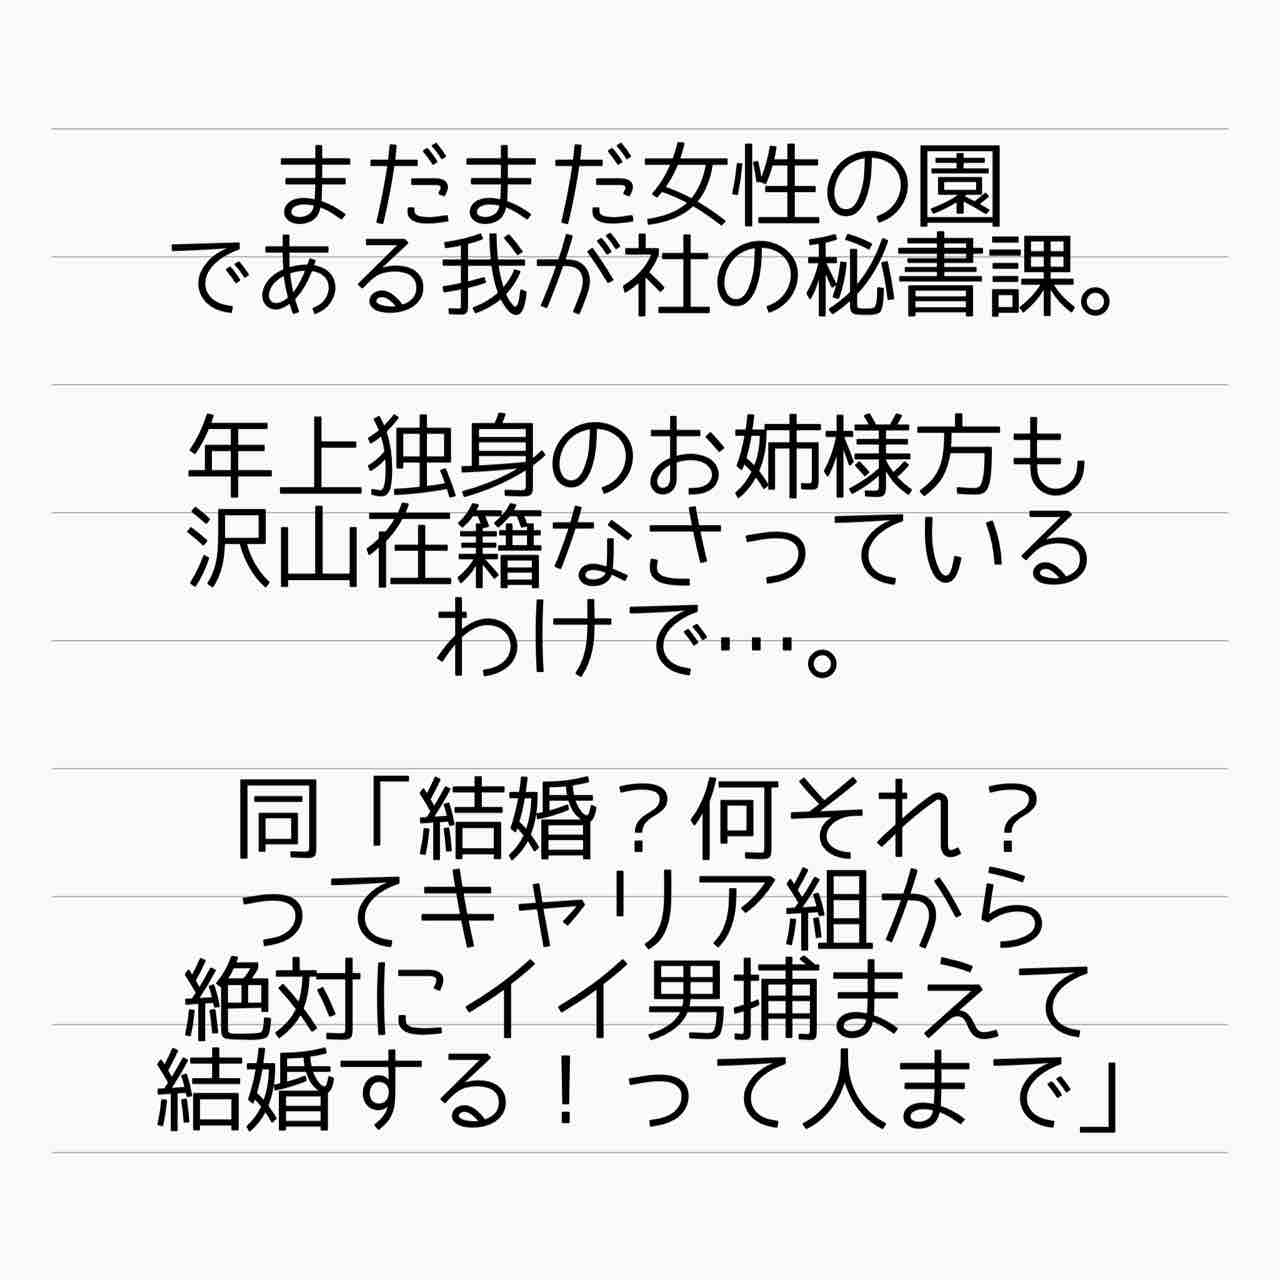 まだまだ女性の園
である我が社の秘書課。
年上独身のお姉様方も
沢山在籍なさっている
わけで…。
同「結婚？何それ？
ってキャリア組から
絶対にイイ男捕まえて
結婚する！って人まで」